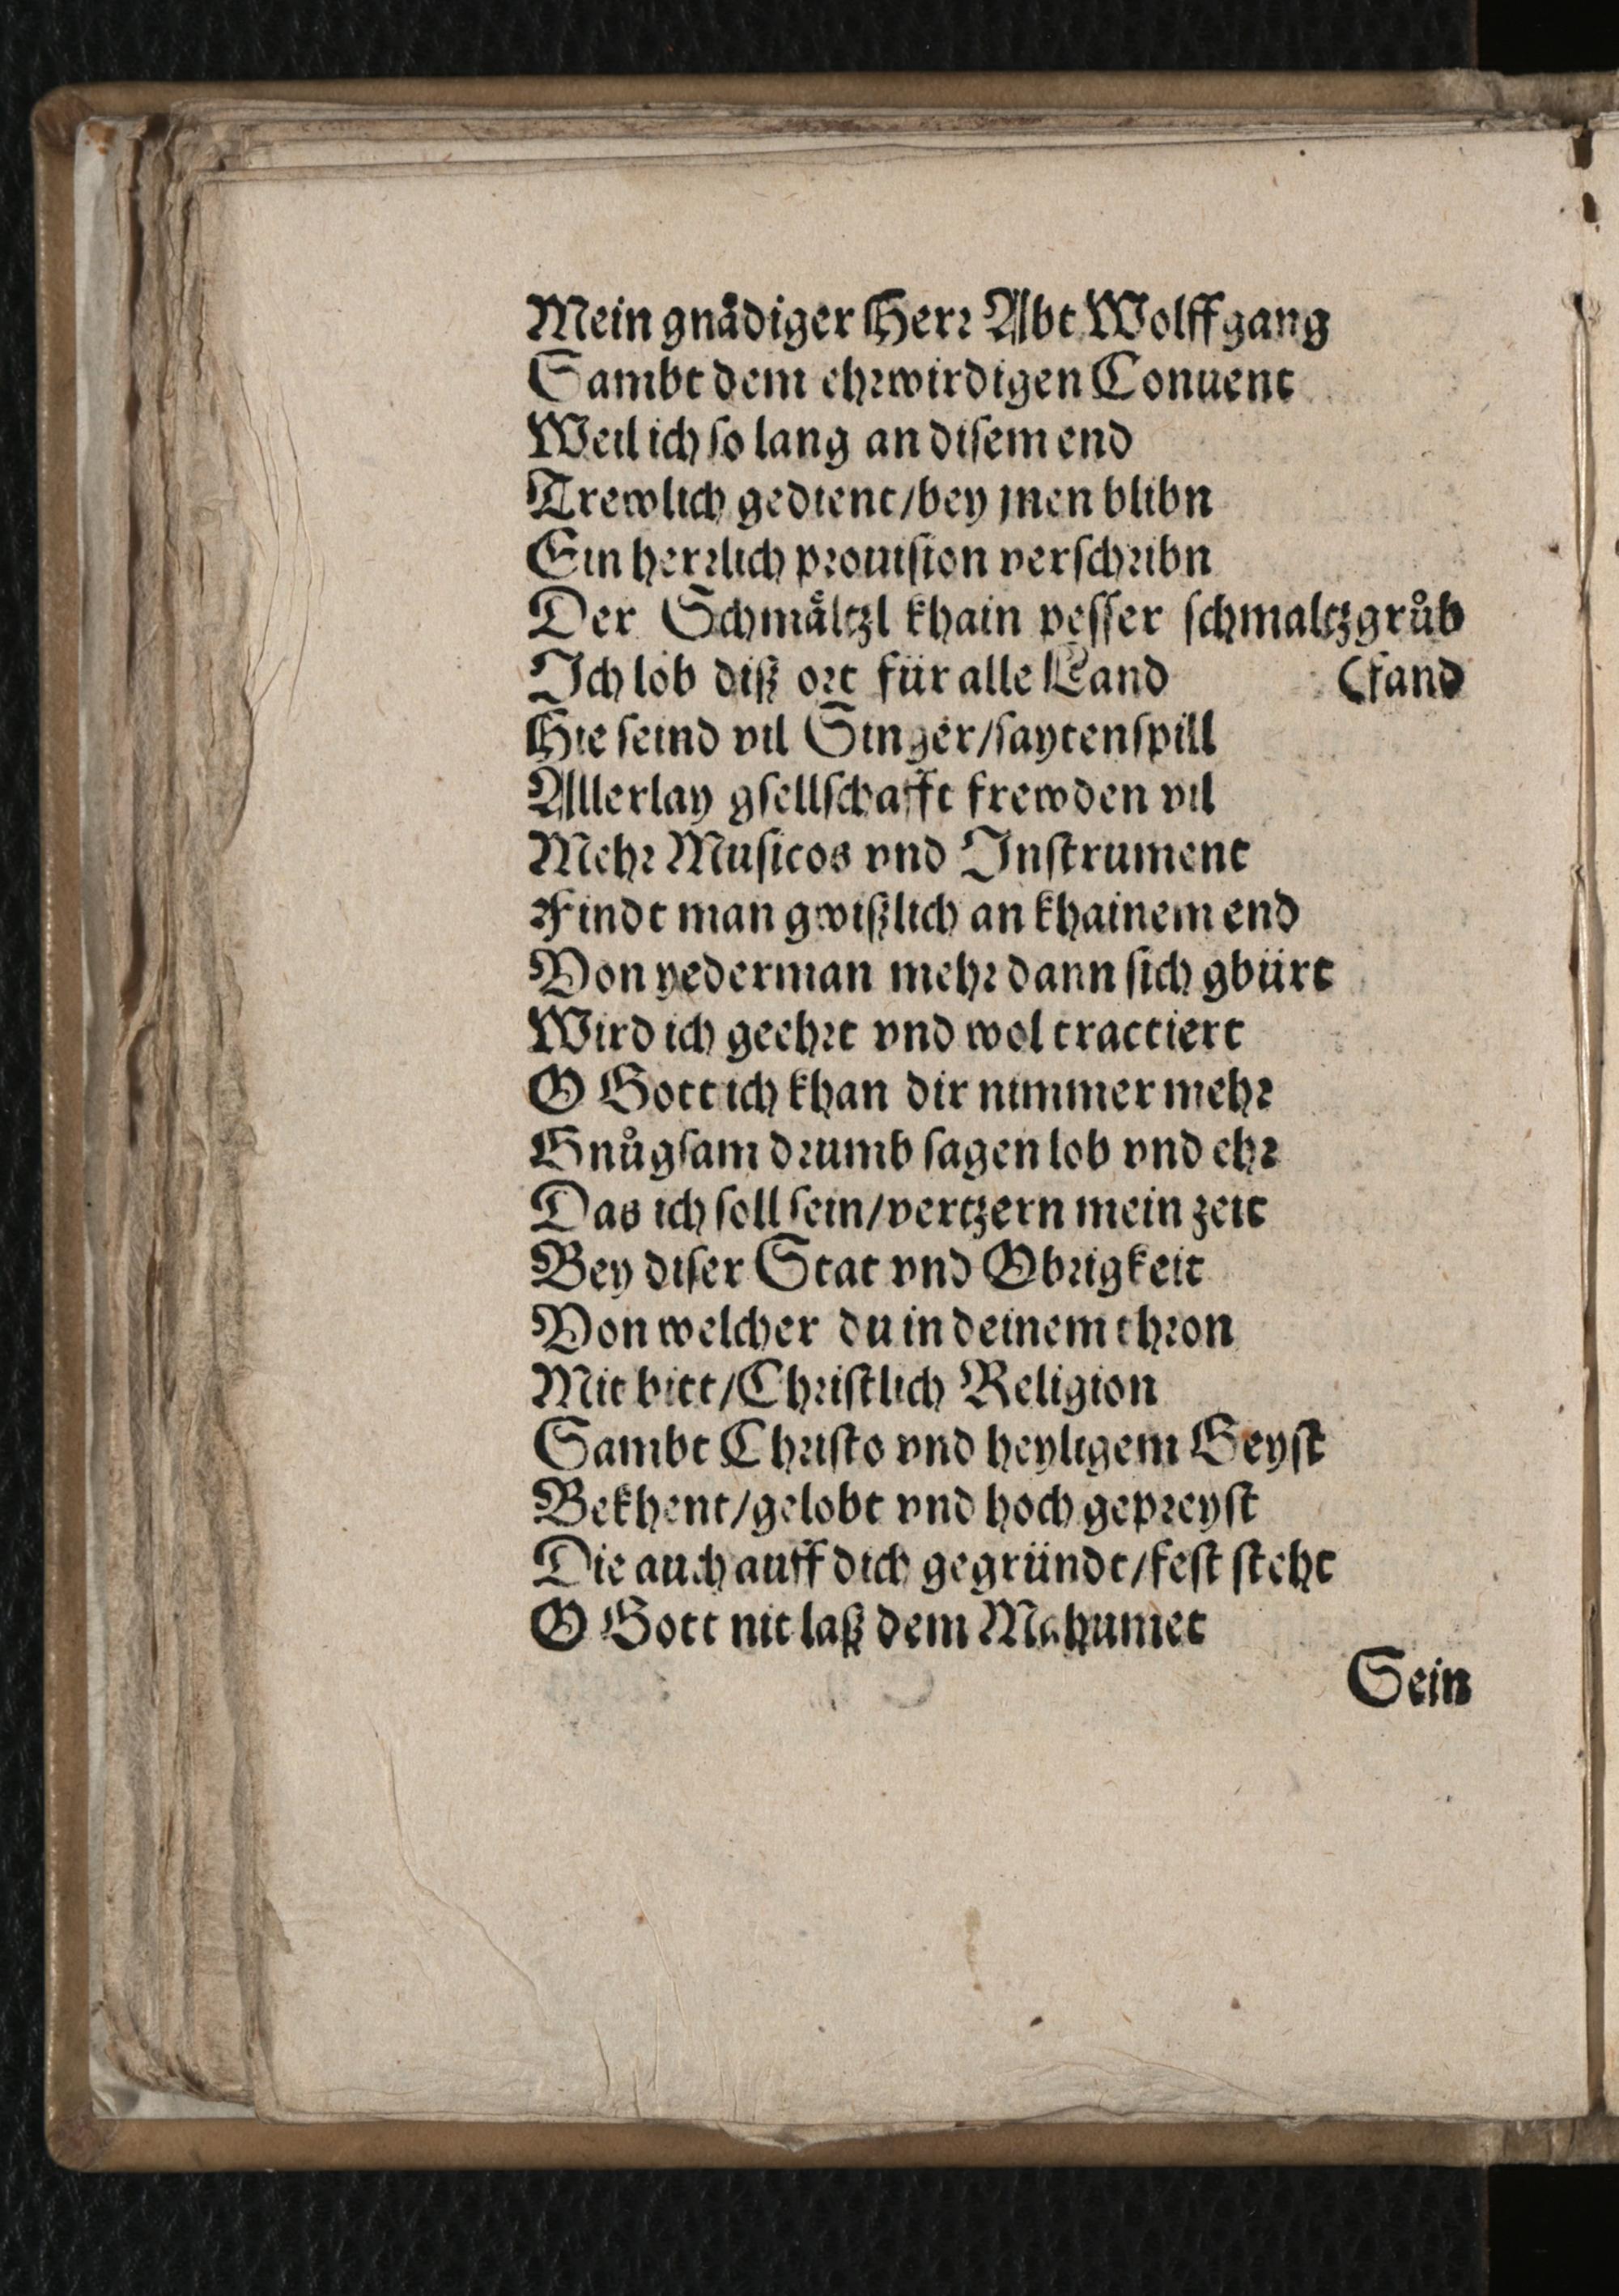 Mein gnådiger Herr Abt Wolffgang
Sambt dem ehrwirdigen Conuent
Weil ich so lang an disem end
Trewlich gedient/bey jnen blibn
Ein herrlich prouision verschribn
Der Schmåltzl khain pesser schmaltzgrůb
Ich lob diß ort für alle Land (fand
Hie seind vil Singer/saytenspill
Allerlay gsellschafft frewden vil
Mehr Musicos vnd Instrument
Findt man gwißlich an khainem end
Von yederman mehr dann sich gbürt
Wird ich geehrt vnd wol tractiert
O Gott ich khan dir nimmer mehr
Gnůgsam drumb sagen lob vnd ehr
Das ich soll sein/vertzern mein zeit
Bey diser Stat vnd Obrigkeit
Von welcher du in deinem thron
Mit bitt/Christlich Religion
Sambt Christo vnd heyligem Geyst
Bekhent/gelobt vnd hoch gepreyst
Die auch auff dich gegründt/fest steht
O Gott nit laß dem Mahumet
Sein